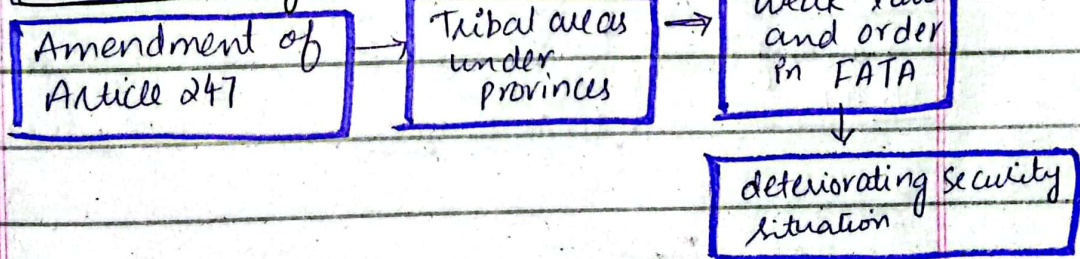 Amendment of
Article 247
Tribal areas
under
provinces
and order
in FATA
deteriorating security
situation